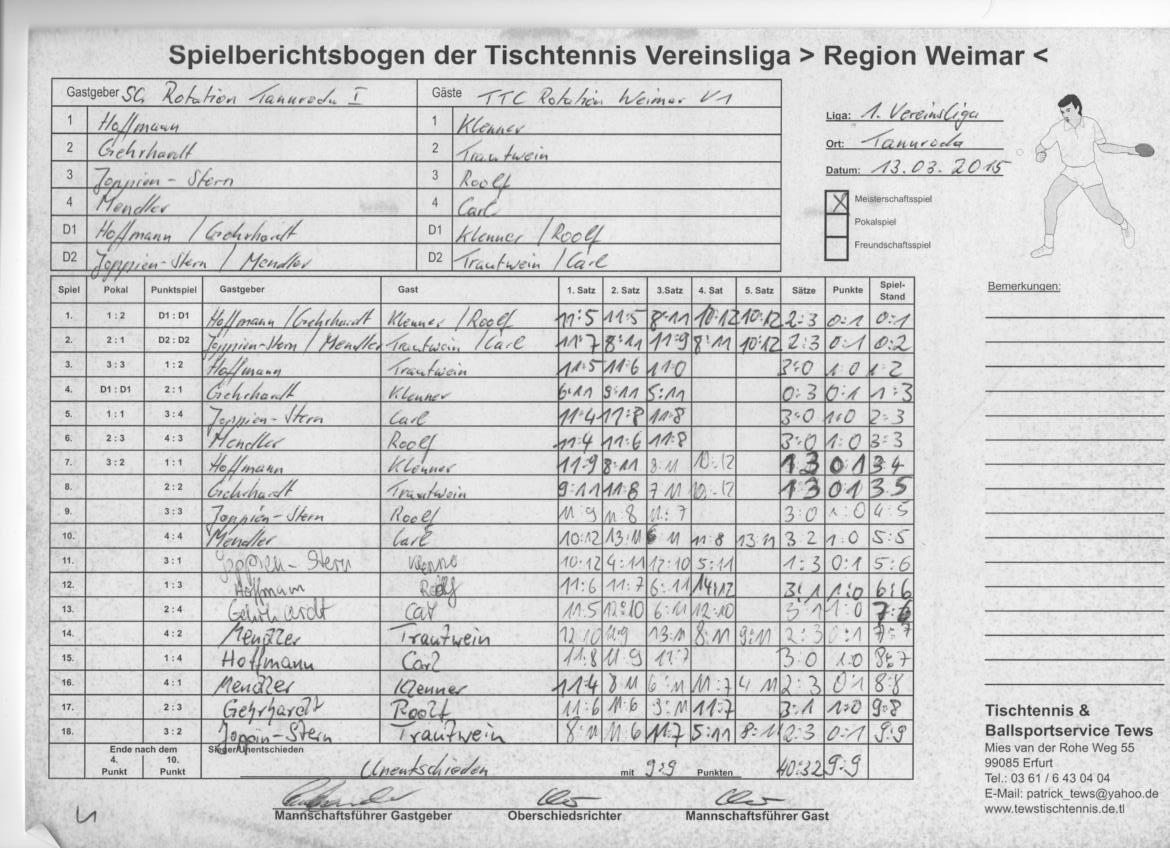 Spielberichtsbogen der Tischtennis Vereinsliga > Region Weimar <
Gastgeber SG Rotation Tannroda I Gäste TTC Rotation Weimar VI
1 Hoffmann 1 Klenner
2 Gehrhardt 2 Trautwein
3 Joppien-Stern 3 Roolf
4 Mendler 4 Carl
D1 Hoffmann / Gehrhardt D1 Klenner / Roolf
D2 Joppien-Stern / Mendler D2 Trautwein / Carl
Liga: 1. Vereinsliga
Ort: Tannroda
Datum: 13.03.2015
X Meisterschaftsspiel
Pokalspiel
Freundschaftsspiel
Bemerkungen:
Spiel Pokal Punktspiel Gastgeber Gast 1. Satz 2. Satz 3.Satz 4. Sat 5. Satz Sätze Punkte Spiel-Stand
1. 1 : 2 D1 : D1 Hoffmann / Gehrhardt Klenner / Roolf 11:5 11:5 8:11 10:12 10:12 2:3 0:1 0:1
2. 2 : 1 D2 : D2 Joppien-Stern / Mendler Trautwein / Carl 11:7 8:11 11:9 8:11 10:12 2:3 0:1 0:2
3. 3 : 3 1 : 2 Hoffmann Trautwein 11:5 11:6 11:0 3:0 1:0 1:2
4. D1 : D1 2 : 1 Gehrhardt Klenner 6:11 9:11 5:11 0:3 0:1 1:3
5. 1 : 1 3 : 4 Joppien-Stern Carl 11:4 11:8 11:8 3:0 1:0 2:3
6. 2 : 3 4 : 3 Mendler Roolf 11:4 11:6 11:8 3:0 1:0 3:3
7. 3 : 2 1 : 1 Hoffmann Klenner 11:9 8:11 8:11 10:12 1 3 0 1 3 4
8. 2 : 2 Gehrhardt Trautwein 9:11 11:8 7:11 10:12 1 3 0 1 3 5
9. 3 : 3 Joppien-Stern Roolf 11:9 11:8 11:7 3:0 1:0 4:5
10. 4 : 4 Mendler Carl 10:12 13:11 6:11 11:8 13:11 3:2 1:0 5:5
11. 3 : 1 Joppien-Stern Klenner 10:12 4:11 12:10 5:11 1:3 0:1 5:6
12. 1 : 3 Hoffmann Roolf 11:6 11:7 6:11 14:12 3:1 1:0 6:6
13. 2 : 4 Gehrhardt Carl 11:5 12:10 6:11 12:10 3:1 1:0 7:6
14. 4 : 2 Mendler Trautwein 12:10 11:9 13:11 8:11 9:11 2:3 0:1 7:7
15. 1 : 4 Hoffmann Carl 11:8 11:9 11:7 3:0 1:0 8:7
16. 4 : 1 Mendler Klenner 11:4 8:11 6:11 11:7 4:11 2:3 0:1 8:8
17. 2 : 3 Gehrhardt Roolf 11:6 11:6 9:11 11:7 3:1 1:0 9:8
18. 3 : 2 Joppin-Stern Trautwein 8:11 11:6 11:7 5:11 8:11 2:3 0:1 9:9
Ende nach dem Sieger/Unentschieden
4. Punkt 10. Punkt Unentschieden mit 9:9 Punkten 40:32 9:9
Mannschaftsführer Gastgeber Oberschiedsrichter Mannschaftsführer Gast
Tischtennis &
Ballsportservice Tews
Mies van der Rohe Weg 55
99085 Erfurt
Tel.: 03 61 / 6 43 04 04
E-Mail: patrick_tews@yahoo.de
www.tewstischtennis.de.tl